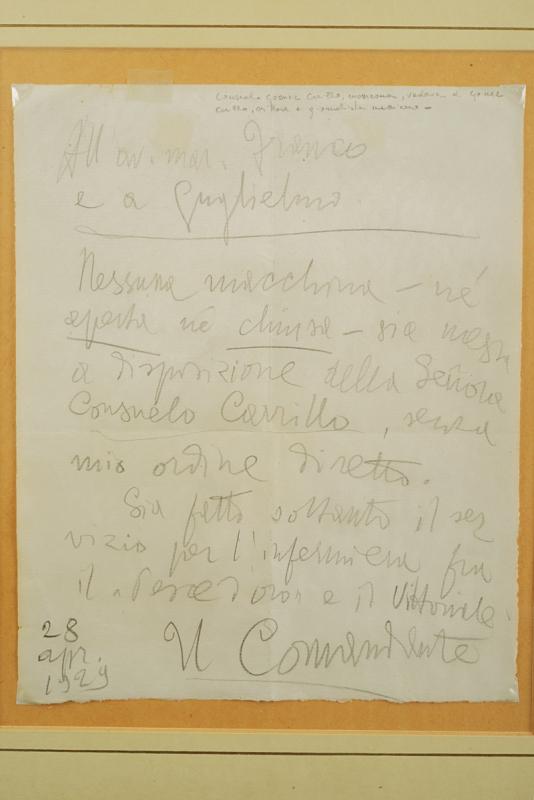 Consuelo Gomez Carrillo, vedova di Gomez
Carrillo, e giornalista
All'av. mar. Franco
e a Guglielmo.
Nessuna macchina – né
aperta né chiusa – sia messa
a disposizione della Señora
Consuelo Carrillo, senza
mio ordine diretto.
Sia fatto soltanto il ser
vizio per l'infermiera fra
il e il Vittoriale.
Il Comandante
28
apr.
1929